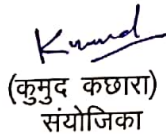 Kumud
(कुमुद कछारा)
संयोजिका